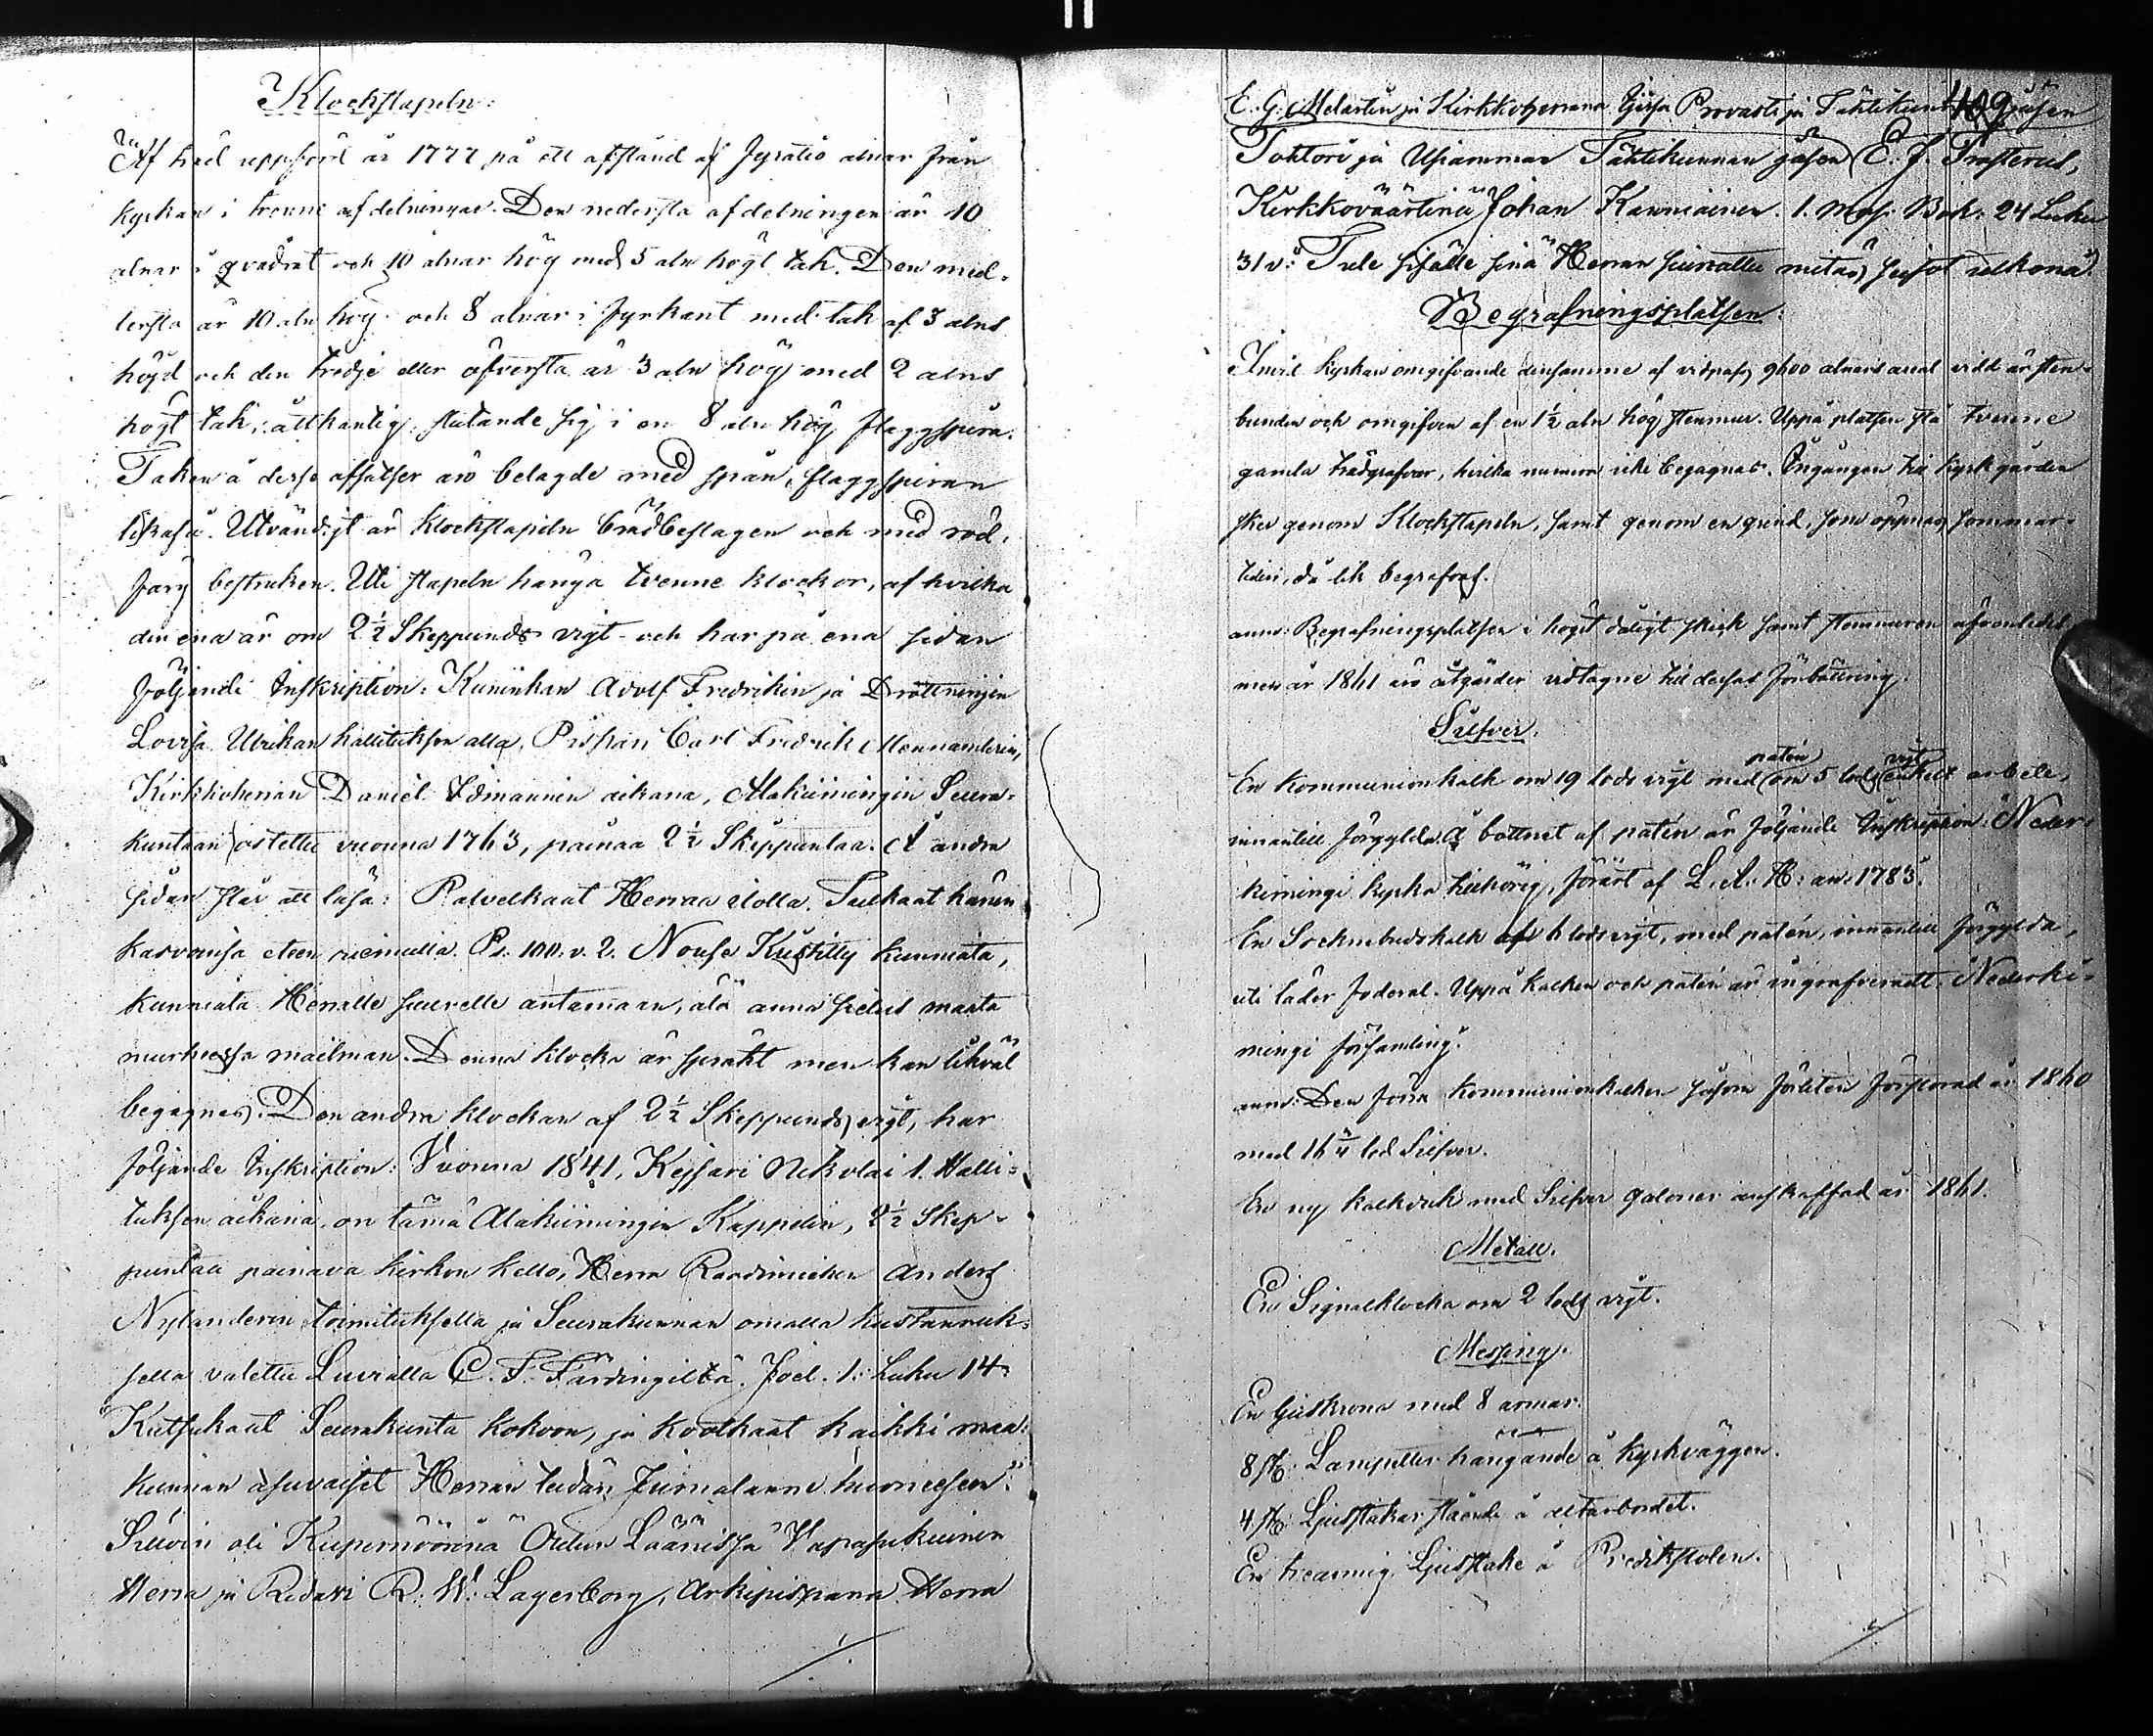 Klockstapeln:
Af träd uppförd år 1777 på ett afstånd af fyratio alnar från
kyrkan i trenne afdelningar. Den nedersta afdelningen är 10
alnar i qvadrat och 10 alnar hög med 5 aln högt tak. Den med-
lersta är 10 aln hög och 8 alnar i fyrkant med tak af 3 alns
höjd och den tredje eller öfversta är 3 aln hög med 2 alns
högt tak, åttkantig, slutande sig i en 8 aln hög flaggspira.
Taken å dessa afsatser äro belagde med spån, flaggspiran
likaså. Utvändigt är klockstapeln brädbeslagen och med röd-
färg bestruken. Uti stapeln hänga tvenne klockor, af hvilka
den ena är om 2½ Skeppunds vigt och har på ena sidan
följande Inskription: Kuninkan Adolf Fredrikin ja Drottningin
Lovisa Ulrikan hallituksen alla, Pispan Carl Fredrik Mennanderin,
Kirkkoherran Daniel Idmannin aikana, Alakiimingin Seura-
kuntaan ostettu vuonna 1763, painaa 2½ Skeppuntaa. Å andra
sidan står att läsa: Palvelkaat Herraa ilolla. Tulkaat hänen
kasvonsa eteen riemulla. Ps. 100. v. 2. Nouse Kristitty kunniata,
kunniata Herralle suurelle antamaan, älä anna sielus maata
murhessa mailman. Denna klocka är spräkt men kan likväl
begagnas. Den andra klockan af 2½ Skeppunds vigt, har
följande Inskription: Vuonna 1841, Kejsari Nikolai 1. Halli-
tuksen aikana, on tämä Alakiimingin Kappelin, 2½ Skep-
puntaa painava kirkon kello, Herra Raadimiehen Anders
Nylanderin toimituksella ja Seurakunnan omalla kustannuk-
sella valettu Luvialla C. F. Färdingiltä. Joel. 1: Luku 14:
"Kutsukaat Seurakunta kokoon, ja kootkaat kaikki maa-
kunnan asuvaiset Herran teidän Jumalanne huoneesen."
Silloin oli Kupernöörinä Oulun Läänissä Vapasukuinen
Herra ja Ridari R. W. Lagerborg, Arkipispana Herra
E. G. Melartin ja Kirkkoherrana Provasti ja
Tohtori ja Tähtikunnan jäsen E. J. Frosterus,
Kirkkoväärtinä Johan Kanniainen. 1. Mos: Bok: 24 Luku
31 v: "Tule sisälle sinä Herran siunattu mitäs seisot ulkona."
409
Begrafningsplatsen:
Invid kyrkan omgifvande densamma af vidpass 9600 alnars areal vidd är sten-
bunden och omgifven af en 1½ aln hög stenmur. Uppå platsen stå tvenne
gamla trägrafvar, hvilka numera icke begagnas. Ingången till kyrkgården
sker genom Klockstapeln, samt genom en grind, som öppnas sommar-
tiden, då lik begrafvas.
anm: Begrafningsplatsen i högst dåligt skick samt stenmuren
men år 1861 äro åtgärder vidtagne till dessas förbättring.
Silfver.
En Kommunionkalk om 19 lods vigt med patén om 5 lods vigt enkelt arbete,
innantill förgylda. Å bottnet af patén är följande Inskription: "Neder-
kimingi kyrka tillhörig, förärt af L. A. H: an: 1783."
En Socknebudskalk af 6 lods vigt, med patén, innantill förgylda,
uti läder foderal. Uppå kalken och patén är ingrafveradt "Nederki-
mingi församling."
anm: Den förra Kommunionkalken såsom förliten förstorad år 1860
med 16¾ lod Silfver.
En ny kalkduk med Silfver galoner anskaffad år 1861.
Metall.
En Signalklocka om 2 lods vigt.
Messing.
En ljuskrona med 8 armar.
8 st: Lampetter hängande å kyrkväggen.
4 st: Ljusstakar stående å altarbordet.
En trearmig Ljusstake å Predikstolen.